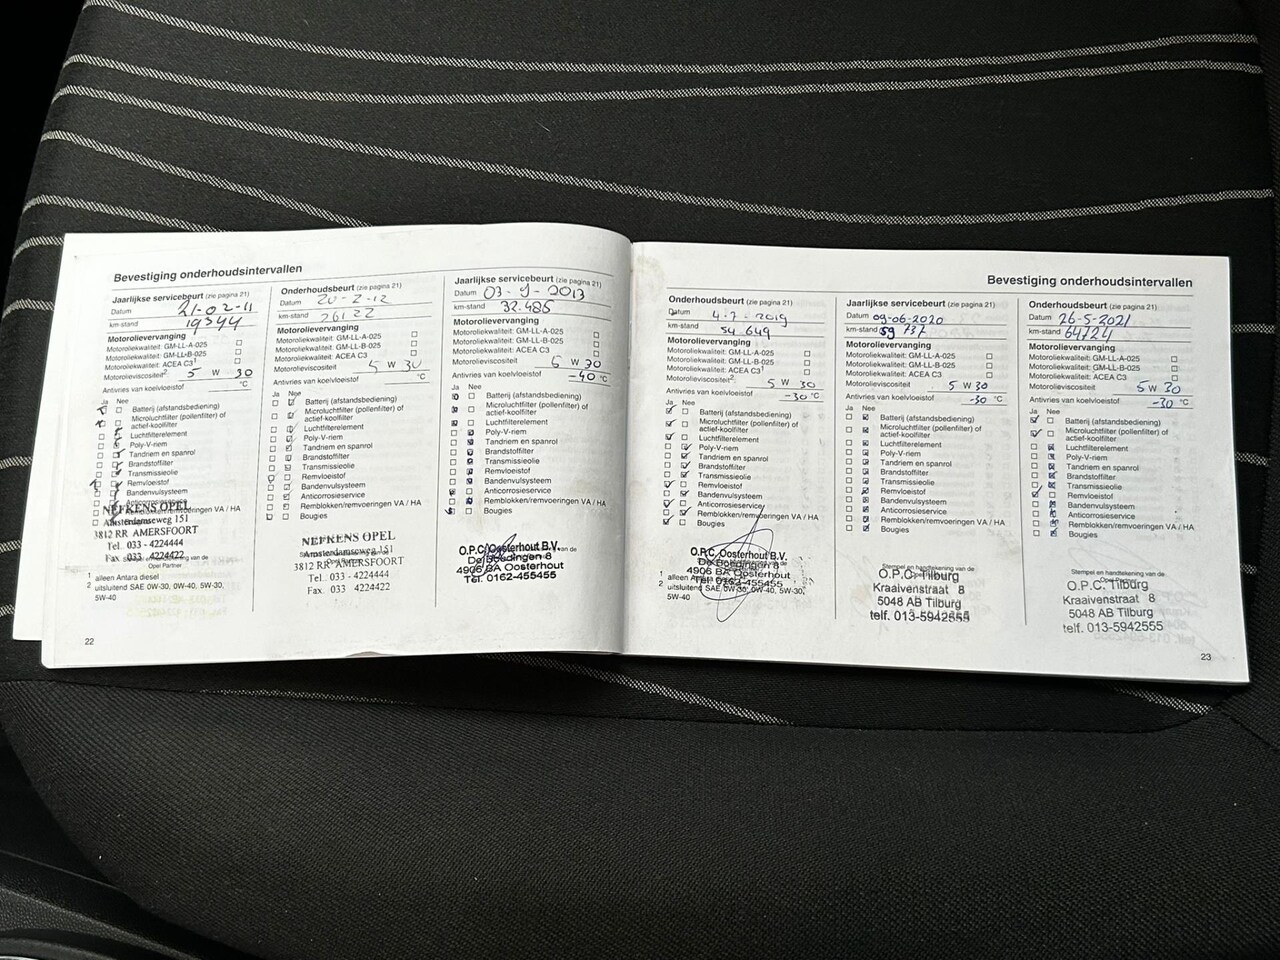 Bevestiging onderhoudsintervallen
Jaarlijkse servicebeurt (zie pagina 21)
Datum 21-02-11
km-stand 19544
Motorolievervanging
Motoroliekwaliteit: GM-LL-A-025
Motoroliekwaliteit: GM-LL-B-025
Motoroliekwaliteit: ACEA C3¹
Motorolieviscositeit²: 5 W 30
Antivries van koelvloeistof °C
Ja Nee
Batterij (afstandsbediening)
Microluchtfilter (pollenfilter) of
actief-koolfilter
Luchtfilterelement
Poly-V-riem
Tandriem en spanrol
Brandstoffilter
Transmissieolie
Remvloeistof
Bandenvulsysteem
Anticorrosieservice
Remblokken/remvoeringen VA / HA
NEFKENS OPEL
Amsterdamseweg 151
3812 RR AMERSFOORT
Tel. 033 - 4224444
Fax 033 4224422
Stempel en handtekening van de
Opel Partner
1 alleen Antara diesel
2 uitsluitend SAE 0W-30, 0W-40, 5W-30,
5W-40
22
Onderhoudsbeurt (zie pagina 21)
Datum 20-2-12
km-stand 26122
Motorolievervanging
Motoroliekwaliteit: GM-LL-A-025
Motoroliekwaliteit: GM-LL-B-025
Motoroliekwaliteit: ACEA C3
Motorolieviscositeit 5 W 30
Antivries van koelvloeistof °C
Ja Nee
Batterij (afstandsbediening)
Microluchtfilter (pollenfilter) of
actief-koolfilter
Luchtfilterelement
Poly-V-riem
Tandriem en spanrol
Brandstoffilter
Transmissieolie
Remvloeistof
Bandenvulsysteem
Anticorrosieservice
Remblokken/remvoeringen VA / HA
Bougies
NEFKENS OPEL
Amsterdamseweg 151
3812 RR AMERSFOORT
Tel. 033 - 4224444
Fax. 033 4224422
Jaarlijkse servicebeurt (zie pagina 21)
Datum 03-9-2013
km-stand 32.485
Motorolievervanging
Motoroliekwaliteit: GM-LL-A-025
Motoroliekwaliteit: GM-LL-B-025
Motoroliekwaliteit: ACEA C3
Motorolieviscositeit 5 W 30
Antivries van koelvloeistof -40 °C
Ja Nee
Batterij (afstandsbediening)
Microluchtfilter (pollenfilter) of
actief-koolfilter
Luchtfilterelement
Poly-V-riem
Tandriem en spanrol
Brandstoffilter
Transmissieolie
Remvloeistof
Bandenvulsysteem
Anticorrosieservice
Remblokken/remvoeringen VA / HA
Bougies
O.P.C. Oosterhout B.V.
De Boedingen 8
4906 BA Oosterhout
Tel. 0162-455455
Bevestiging onderhoudsintervallen
Onderhoudsbeurt (zie pagina 21)
Datum 4-7-2019
km-stand 54 649
Motorolievervanging
Motoroliekwaliteit: GM-LL-A-025
Motoroliekwaliteit: GM-LL-B-025
Motoroliekwaliteit: ACEA C3¹
Motorolieviscositeit²: 5 W 30
Antivries van koelvloeistof -30 °C
Ja Nee
Batterij (afstandsbediening)
Microluchtfilter (pollenfilter) of
actief-koolfilter
Luchtfilterelement
Poly-V-riem
Tandriem en spanrol
Brandstoffilter
Transmissieolie
Remvloeistof
Bandenvulsysteem
Anticorrosieservice
Remblokken/remvoeringen VA / HA
Bougies
O.P.C. Oosterhout B.V.
De Boedingen 8
4906 BA Oosterhout
Tel. 0162-455455
1 alleen Antara diesel
2 uitsluitend SAE 0W-30, 0W-40, 5W-30,
5W-40
Jaarlijkse servicebeurt (zie pagina 21)
Datum 09-06-2020
km-stand 59 737
Motorolievervanging
Motoroliekwaliteit: GM-LL-A-025
Motoroliekwaliteit: GM-LL-B-025
Motoroliekwaliteit: ACEA C3
Motorolieviscositeit 5 W 30
Antivries van koelvloeistof -30 °C
Ja Nee
Batterij (afstandsbediening)
Microluchtfilter (pollenfilter) of
actief-koolfilter
Luchtfilterelement
Poly-V-riem
Tandriem en spanrol
Brandstoffilter
Transmissieolie
Remvloeistof
Bandenvulsysteem
Anticorrosieservice
Remblokken/remvoeringen VA / HA
Bougies
Stempel en handtekening van de
O.P.C. Tilburg
Kraaivenstraat 8
5048 AB Tilburg
telf. 013-5942555
Onderhoudsbeurt (zie pagina 21)
Datum 26-5-2021
km-stand 64724
Motorolievervanging
Motoroliekwaliteit: GM-LL-A-025
Motoroliekwaliteit: GM-LL-B-025
Motoroliekwaliteit: ACEA C3
Motorolieviscositeit 5 W 30
Antivries van koelvloeistof -30 °C
Ja Nee
Batterij (afstandsbediening)
Microluchtfilter (pollenfilter) of
actief-koolfilter
Luchtfilterelement
Poly-V-riem
Tandriem en spanrol
Brandstoffilter
Transmissieolie
Remvloeistof
Bandenvulsysteem
Anticorrosieservice
Remblokken/remvoeringen VA / HA
Bougies
Stempel en handtekening van de
O.P.C. Tilburg
Kraaivenstraat 8
5048 AB Tilburg
telf. 013-5942555
23